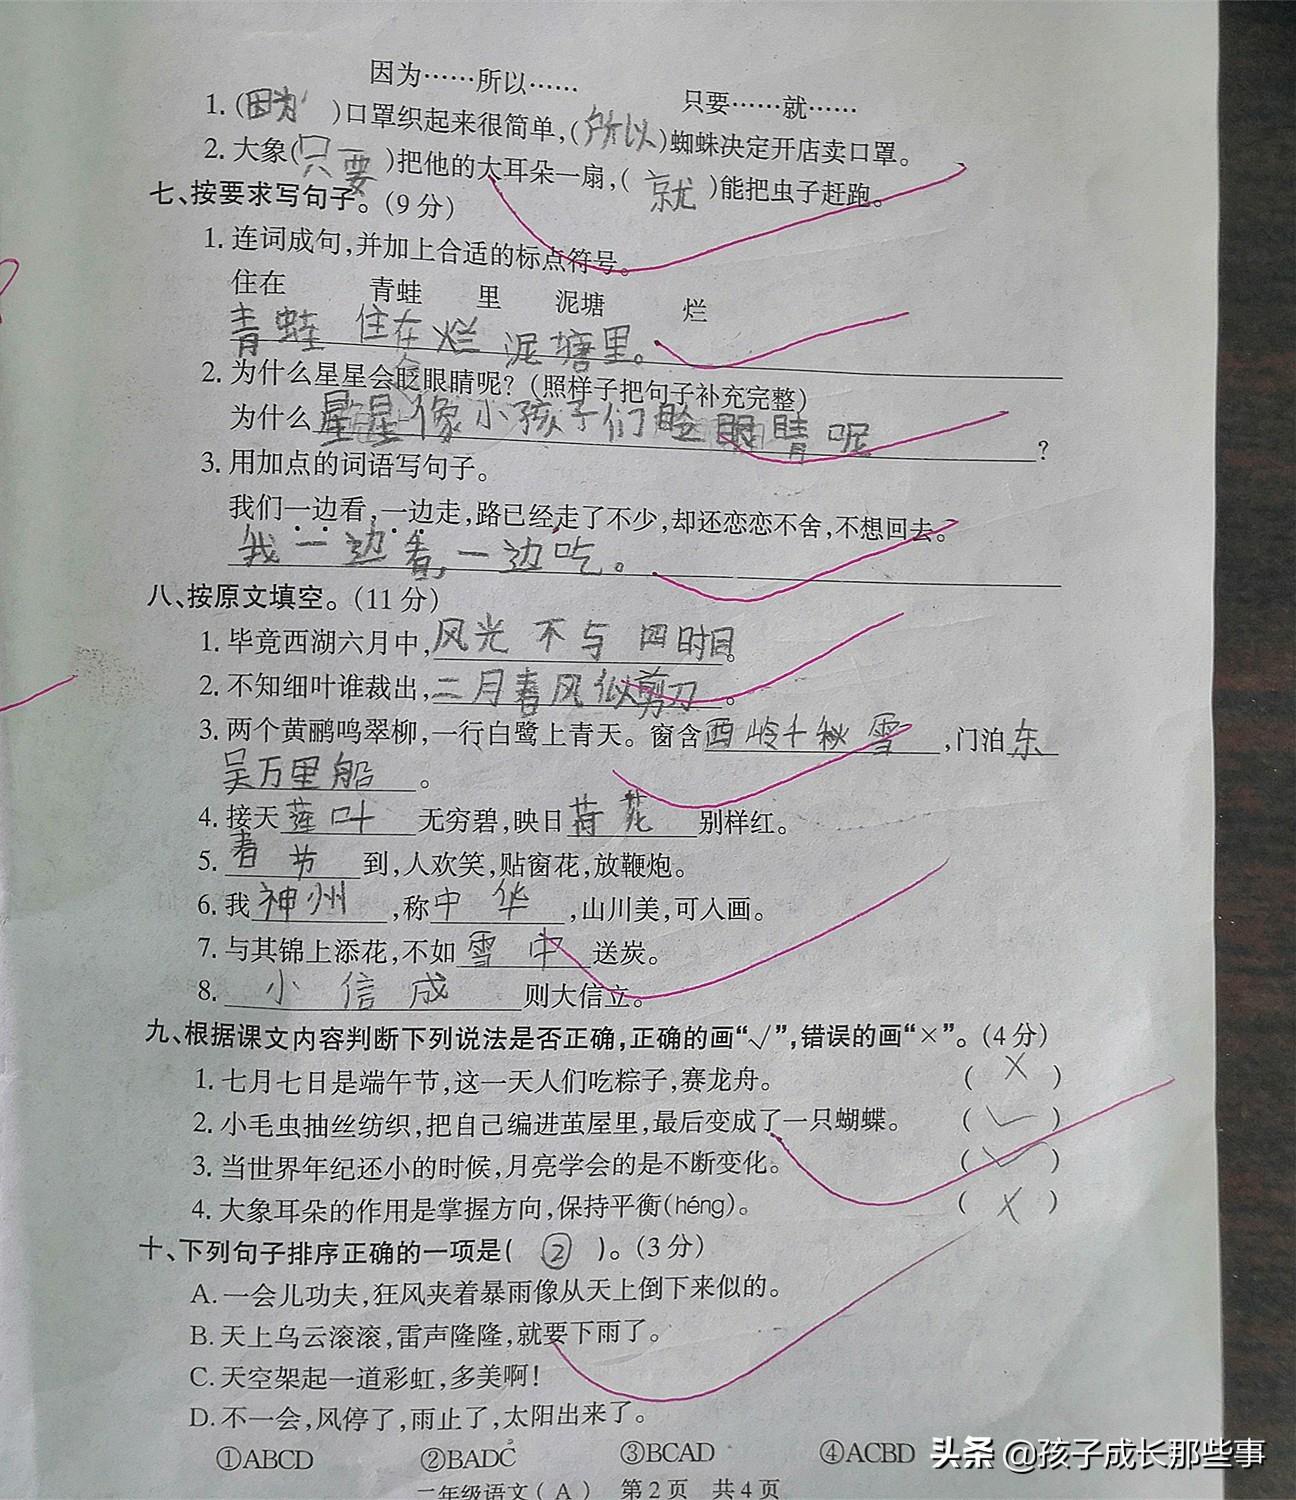 因为……所以…… 只要……就……
1. (因为)口罩织起来很简单,(所以)蜘蛛决定开店卖口罩。
2. 大象(只要)把他的大耳朵一扇,(就)能把虫子赶跑。
七、按要求写句子。(9分)
1. 连词成句,并加上合适的标点符号。
住在 青蛙 里 泥塘 烂
青蛙住在烂泥塘里。
2. 为什么星星会眨眼睛呢?(照样子把句子补充完整)
为什么星星像小孩子们眨眼睛呢?
3. 用加点的词语写句子。
我们一边看,一边走,路已经走了不少,却还恋恋不舍,不想回去。
我一边看,一边吃。
八、按原文填空。(11分)
1. 毕竟西湖六月中,风光不与四时同。
2. 不知细叶谁裁出,二月春风似剪刀。
3. 两个黄鹂鸣翠柳,一行白鹭上青天。窗含西岭千秋雪,门泊东
吴万里船。
4. 接天莲叶无穷碧,映日荷花别样红。
5. 春节到,人欢笑,贴窗花,放鞭炮。
6. 我神州,称中华,山川美,可入画。
7. 与其锦上添花,不如雪中送炭。
8. 小信成则大信立。
九、根据课文内容判断下列说法是否正确,正确的画“√”,错误的画“×”。(4分)
1. 七月七日是端午节,这一天人们吃粽子,赛龙舟。 (×)
2. 小毛虫抽丝纺织,把自己编进茧屋里,最后变成了一只蝴蝶。 (√)
3. 当世界年纪还小的时候,月亮学会的是不断变化。 (√)
4. 大象耳朵的作用是掌握方向,保持平衡(héng)。 (×)
十、下列句子排序正确的一项是(②)。(3分)
A. 一会儿功夫,狂风夹着暴雨像从天上倒下来似的。
B. 天上乌云滚滚,雷声隆隆,就要下雨了。
C. 天空架起一道彩虹,多美啊!
D. 不一会,风停了,雨止了,太阳出来了。
①ABCD ②BADC ③BCAD ④ACBD
二年级语文(A) 第2页 共4页
头条 @孩子成长那些事